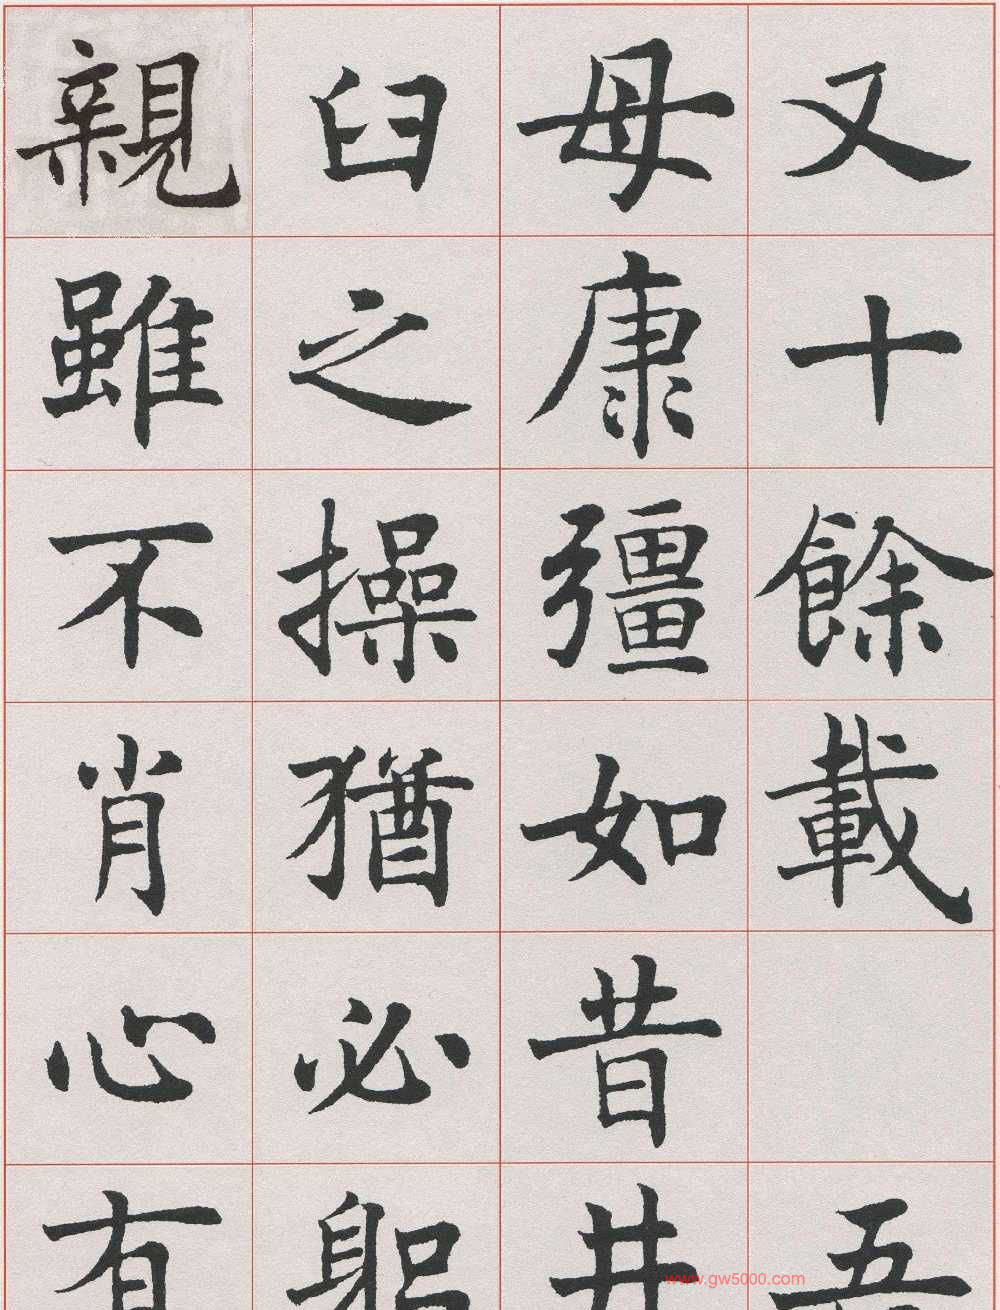 又十餘載 五
母康彊如昔井
臼之操猶必躬
親雖不肖心有
www.gw5000.com